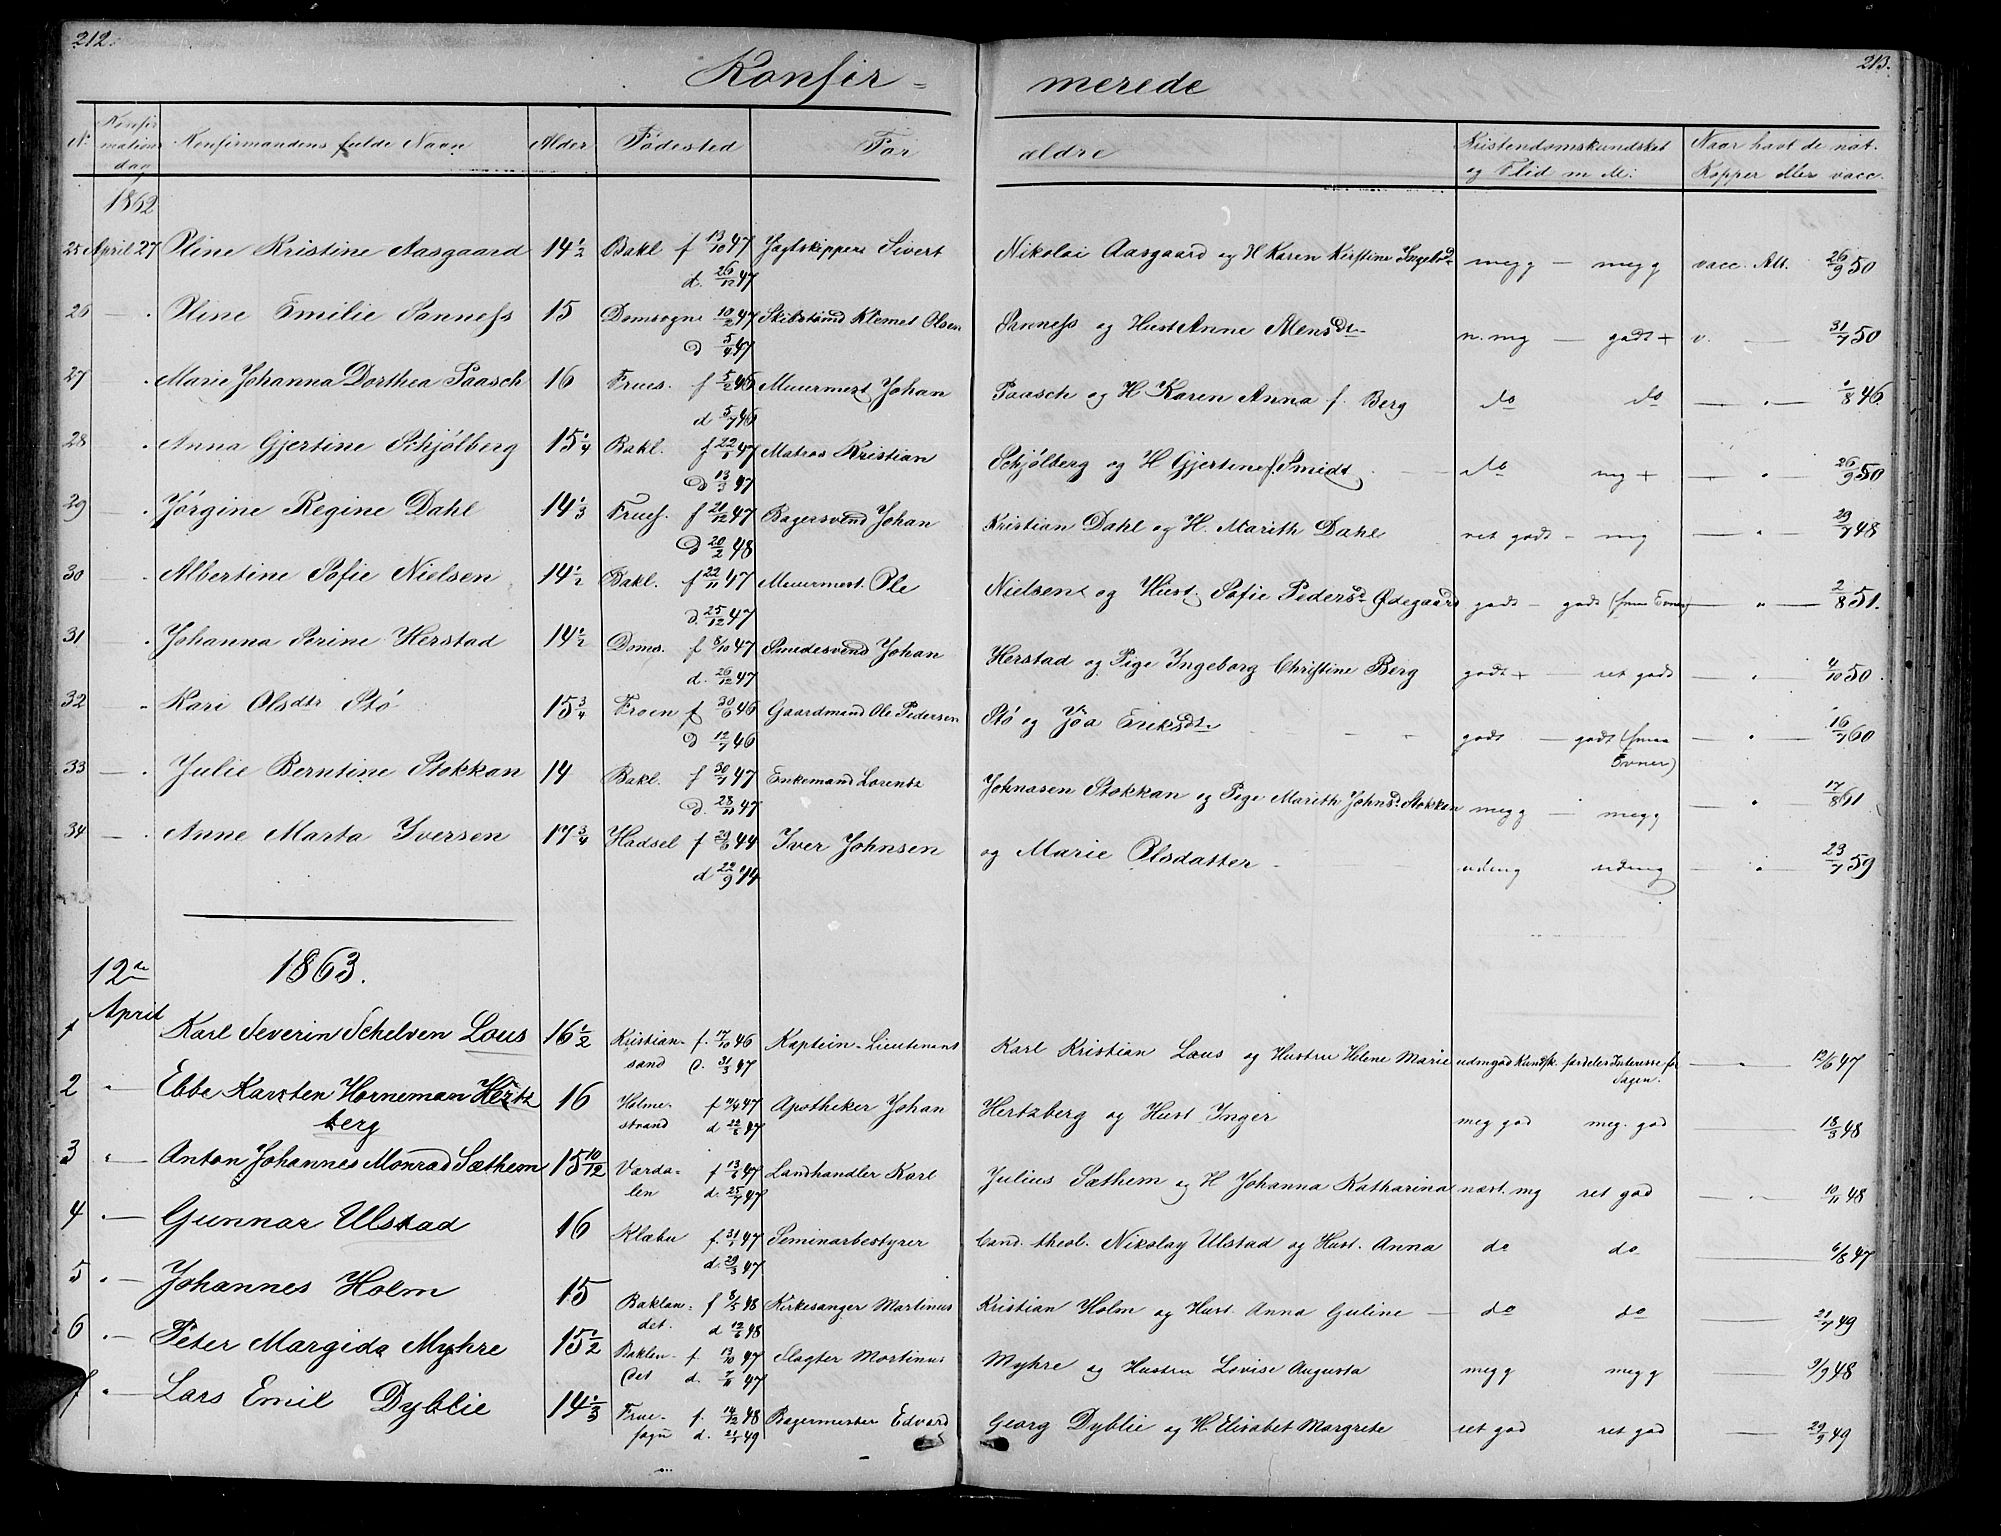 212.
213.
Konfir = merede
No Konfirmations dag Konfirmandens fulde Navn Alder Fødested For ældre Kristendomskundskab og Flid m M: Naar havt de nat. Kopper eller vacc.
1862
25 April 27 Oline Kristine Aasgaard 14 1/2 Bakl. f 13/10 47 Jagtskipper Sivert Nikolai Aasgaard og H Karen Kirstine Ingebr. megg — megg vacc. Att. 26/9 50
d. 26/12 47
26 — Oline Emilie Sanness 15 Domsogne 10/2 47 Skibstømd Klemet Olsen Sanness og Hust Anne Mensdt. n. mg — godt + v. — 31/7 50
d 5/4 47
27 — Marie Johanna Dorthea Paasch 16 Frues. f 5/2 46 Muurmest. Johan Paasch og H Karen Anna f. Berg do do — " — 1/8 46
d 5/7 46
28 — Anna Gjertine Schjølberg 15 1/4 Bakl. f 22/1 47 Matros Kristian Schjølberg og H Gjertine f. Smidt do mg + — " — 26/9 50
d 13/3 47
29 — Jørgine Regine Dahl 14 1/3 Frues. f 21/12 47 Bagersvend Johan Kristian Dahl og H. Marith Dahl ret godt - mg — " — 29/7 48
d 20/2 48
30 — Albertine Sofie Nielsen 14 1/2 Bakl. f 22/11 47 Muurmest. Ole Nielsen og Hust. Sofie Pedersd. Ødegaard godt - godt (smaa Evner) — " — 2/8 51.
d. 25/12 47
31 — Johanna Serine Herstad 14 1/2 Doms. f 8/10 47 Smedesvend Johan Herstad og Pige Ingeborg Christine Berg godt + — ret godt — " — 4/10 50
d. 26/12 47
32 — Kari Olsdtr Stø 15 3/4 Froen f 30/6 46 Gaardmand Ole Pedersen Stø og Joa Eriksdt. godt — godt (smaa Evner) — " — 16/7 60
d 12/7 46
33 — Julie Berntine Stokkan 14 Bakl. f 30/7 47 Enkemand Lorentz Johnasen Stokkan og Pige Marith Johnsd. Stokkan megg — megg — " — 17/8 61
d. 28/11 47
34 — Anne Marta Iversen 17 3/4 Hadsel f 29/6 44 Iver Johnsen og Marie Olsdatter udmg udmg — " — 23/7 59
d 22/9 44
1863.
12te April
1 Karl Severin Schelven Lous 16 1/2 Kristiansand f. 17/10 46 Kaptein-Lieutenant Karl Kristian Lous og Hustru Helene Marie udmgod Kundsk. fordeler Interesse for Sagen. — 12/6 47
d. 31/3 47
2 " Ebbe Karsten Horneman Hertzberg 16 Holmestrand f 11/4 47 Apotheker Johan Hertzberg og Hust Inger meg god meg. god — 18/3 48
d 22/6 47
3 " Anton Johannes Monrad Sæthem 15 10/12 Værdalen f 13/6 47 Landhandler Karl Julius Sæthem og H Johanna Katharina nært. mg ret god — " — 10/11 48
d. 25/7 47
4 — Gunnar Ulstad 16 Klæbu f. 31/1 47 Seminarbestyrer Cand. theol. Nikolay Ulstad og Hust. Anna do do — 6/8 47
d. 29/3 47
5 — Johannes Holm 15 Baklandet. f 8/5 48 Kirkesanger Martinus Kristian Holm og Hust. Anna Guline — do do — 21/7 49
d 12/6 48
6 — Peter Margido Myhre 15 1/2 Baklandet f. 13/10 47 Slagter Martinus Myhre og Hustru Lovise Augusta megg megg — 9/9 48
d. 7/11 47
7 — Lars Emil Dyblie 14 1/3 Fruesogn f. 14/12 48 Bagermester Edvard Georg Dyblie og H Elisabet Margrete ret god ret god — 29/9 49
d. 21/1 49